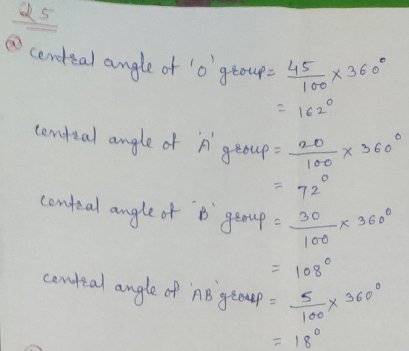 25
a central angle of 'O' group = 45/100 × 360°
= 162°
central angle of 'A' group = 20/100 × 360°
= 72°
central angle of 'B' group = 30/100 × 360°
= 108°
central angle of 'AB' group = 5/100 × 360°
= 18°